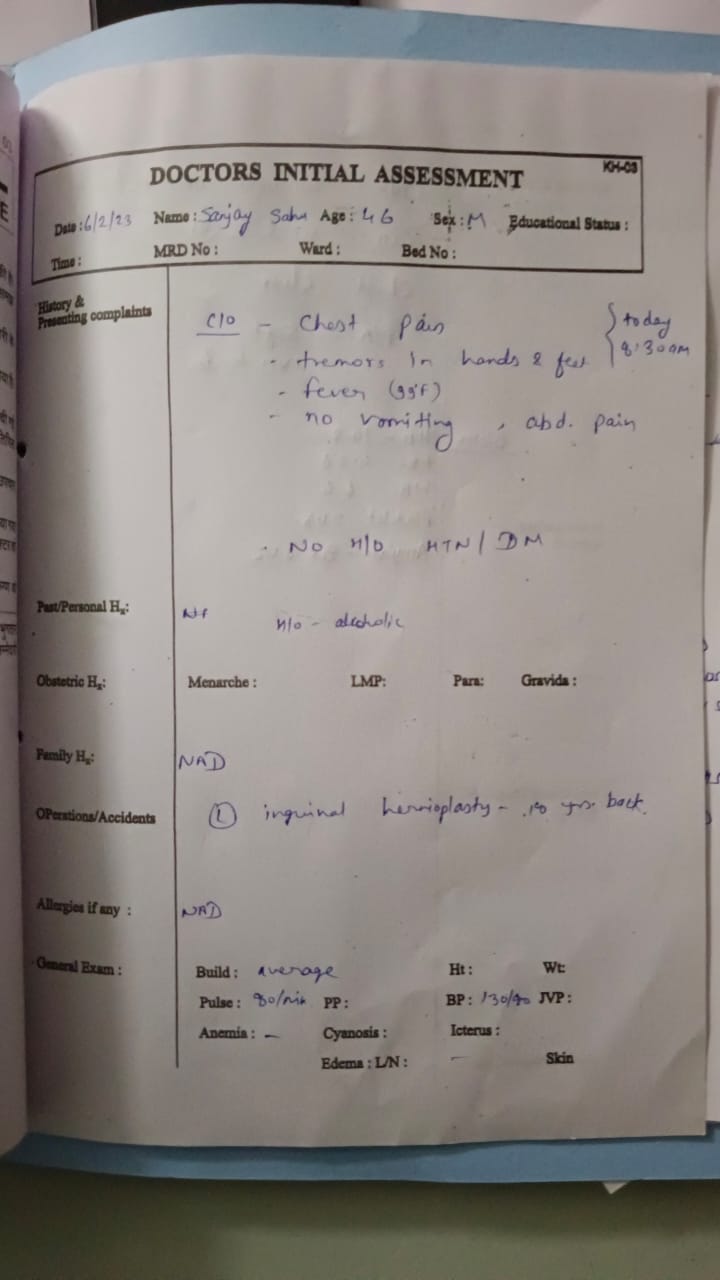 KH-03
DOCTORS INITIAL ASSESSMENT
Date : 6/2/23 Name : Sanjay Sahu Age : 46 Sex : M Educational Status :
Time : MRD No : Ward : Bed No :
History &
Presenting complaints
C/O - Chest pain } today
- tremors in hands & feet 8:30 am
- fever (99°F)
- no vomiting , abd. pain
. NO H/O HTN / DM
Past/Personal Hx: H/O - alcoholic
Obstetric Hx: Menarche : LMP: Para: Gravida :
Family Hx: NAD
OPerations/Accidents (L) inguinal hernioplasty - yrs. back.
Allergies if any : NAD
General Exam : Build : average Ht : Wt:
Pulse : 80/min PP : BP : 130/90 JVP :
Anemia : - Cyanosis : Icterus :
Edema : L/N : - Skin